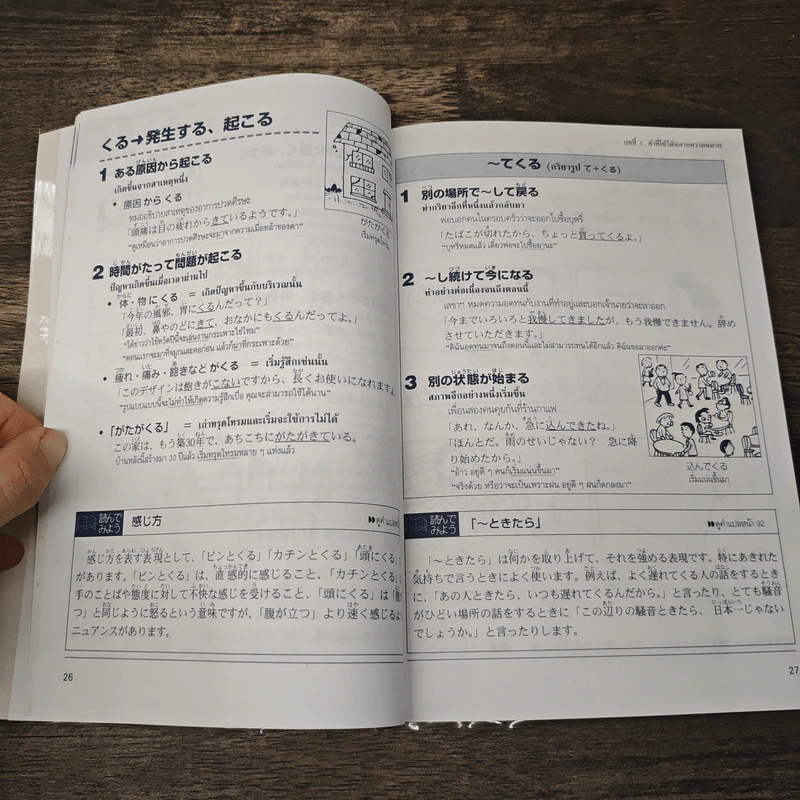 くる→発生する、起こる
1 ある原因から起こる
เกิดขึ้นจากสาเหตุหนึ่ง
• 原因 から くる
หมออธิบายสาเหตุของอาการปวดศีรษะ
「頭痛は目の疲れからきているようです。」
"ดูเหมือนว่าอาการปวดศีรษะจะมาจากความเมื่อยล้าของตา"
がたがくる
เริ่มทรุดโทรม
2 時間がたって問題が起こる
ปัญหาเกิดขึ้นเมื่อเวลาผ่านไป
• 体・物 に くる = เกิดปัญหาขึ้นกับบริเวณนั้น
「今年の風邪、胃にくるんだって？」
「最初、鼻やのどにきて、おなかにもくるんだってよ。」
"ได้ข่าวว่าไข้หวัดปีนี้จะเล่นงานกระเพาะใช่ไหม"
"ตอนแรกจะมาที่จมูกและคอก่อน แล้วก็มาที่กระเพาะด้วย"
• 疲れ・痛み・飽きなど がくる = เริ่มรู้สึกเช่นนั้น
「このデザインは飽きがこないですから、長くお使いになれますよ
"รูปแบบแบบนี้จะไม่ทำให้เกิดความรู้สึกเบื่อ คุณจะสามารถใช้ได้นาน"
• 「がたがくる」 = เก่าทรุดโทรมและเริ่มจะใช้การไม่ได้
この家は、もう築30年で、あちこちにがたがきている。
บ้านหลังนี้สร้างมา 30 ปีแล้ว เริ่มทรุดโทรมหลาย ๆ แห่งแล้ว
読んでみよう 感じ方
▶▶ดูคำแปลหน้
感じ方を表す表現として、「ピンとくる」「カチンとくる」「頭にくる」
があります。「ピンとくる」は、直感的に感じること、「カチンとくる」
手のことばや態度に対して不快な感じを受けること、「頭にくる」は「
つ」と同じように怒るという意味ですが、「腹が立つ」より速く感じる
ニュアンスがあります。
26
บทที่ 1 คำที่ใช้ได้หลายความหมาย
～てくる (กริยารูป て+くる)
1 別の場所で～して戻る
ทำกริยาอีกที่หนึ่งแล้วกลับมา
พ่อบอกคนในครอบครัวว่าจะออกไปซื้อบุหรี่
「たばこが切れたから、ちょっと買ってくるよ。」
"บุหรี่หมดแล้ว เดี๋ยวพ่อจะไปซื้อมานะ"
2 ～し続けて今になる
ทำอย่างต่อเนื่องจนถึงตอนนี้
เลขาฯ หมดความอดทนกับงานที่ทำอยู่และบอกเจ้านายว่าจะลาออก
「今までいろいろと我慢してきましたが、もう我慢できません。辞め
させていただきます。」
"ดิฉันอดทนมาจนถึงตอนนี้และไม่สามารถทนได้อีกแล้ว ดิฉันขอลาออกค่ะ"
3 別の状態が始まる
สภาพอีกอย่างหนึ่งเริ่มขึ้น
เพื่อนสองคนคุยกันที่ร้านกาแฟ
「あれ、なんか、急に込んできたね。」
「ほんとだ。雨のせいじゃない？ 急に降
り始めたから。」
"อ้าว อยู่ดี ๆ คนก็เริ่มแน่นขึ้นมา"
"จริงด้วย หรือว่าจะเป็นเพราะฝน อยู่ดี ๆ ฝนก็ตกลงมา"
込んでくる
เริ่มแน่นขึ้นมา
読んでみよう 「～ときたら」
▶▶ดูคำแปลหน้า 92
「～ときたら」は何かを取り上げて、それを強める表現です。特にあきれた
気持ちで言うときによく使います。例えば、よく遅れてくる人の話をするとき
に、「あの人ときたら、いつも遅れてくるんだから。」と言ったり、とても騒音
がひどい場所の話をするときに「この辺りの騒音ときたら、日本一じゃない
でしょうか。」と言ったりします。
27